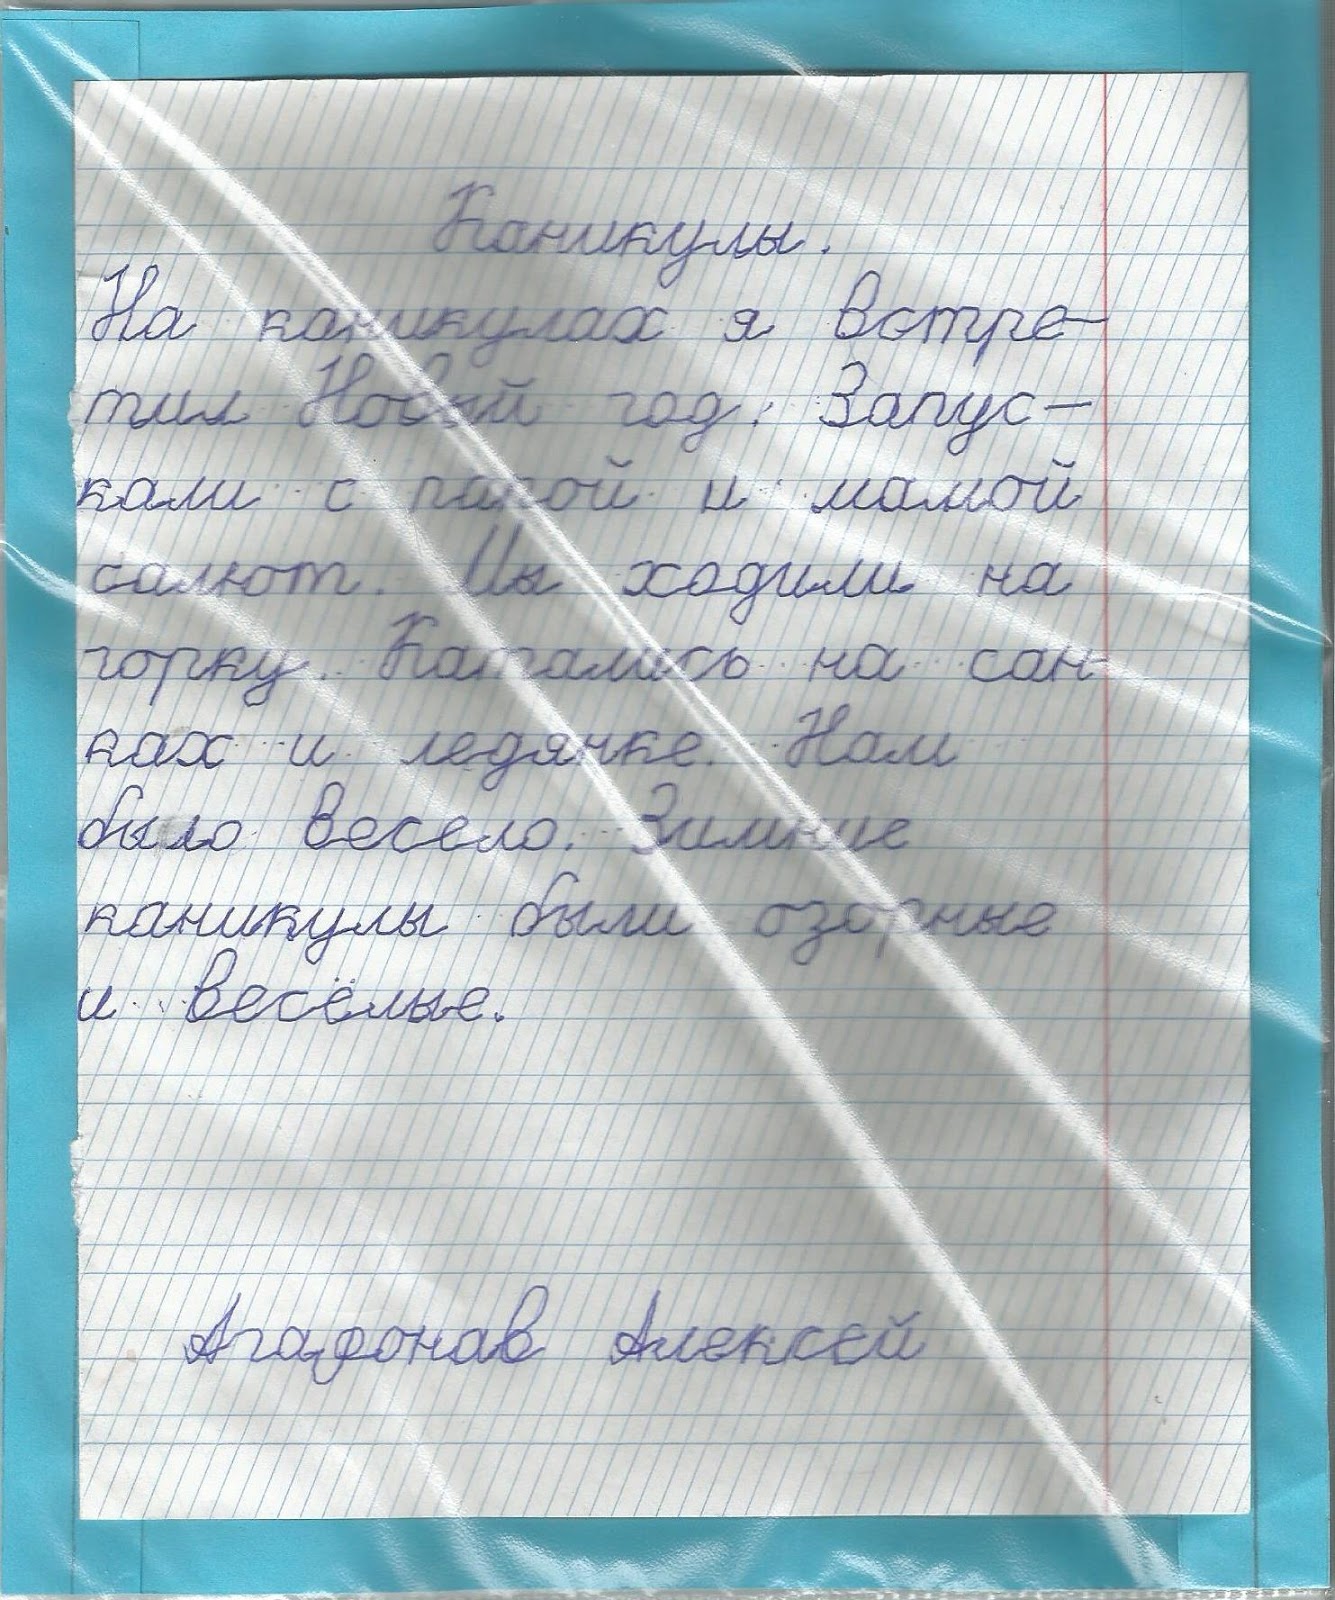 Каникулы.
На каникулах я встре-
тил Новый год. Запус-
кали с папой и мамой
салют. Мы ходили на
горку. Катались на сан-
ках и ледянке. Нам
было весело. Зимние
каникулы были озорные
и весёлые.
Агафонав Алексей